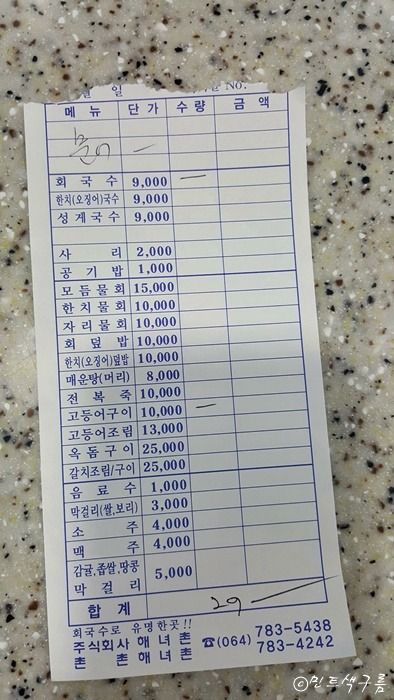 월 일 No.
메뉴 단가 수량 금액
문어 —
회국수 9,000 —
한치(오징어)국수 9,000
성게국수 9,000
사리 2,000
공기밥 1,000
모듬물회 15,000
한치물회 10,000
자리물회 10,000
회덮밥 10,000
한치(오징어)덮밥 10,000
매운탕(머리) 8,000
전복죽 10,000
고등어구이 10,000 —
고등어조림 13,000
옥돔구이 25,000
갈치조림/구이 25,000
음료수 1,000
막걸리(쌀,보리) 3,000
소주 4,000
맥주 4,000
감귤,좁쌀,땅콩
막걸리 5,000
합계 29 —
회국수로 유명한곳!!
주식회사 해녀촌 ☎(064) 783-5438
촌촌해녀촌 783-4242
ⓒ민트색구름